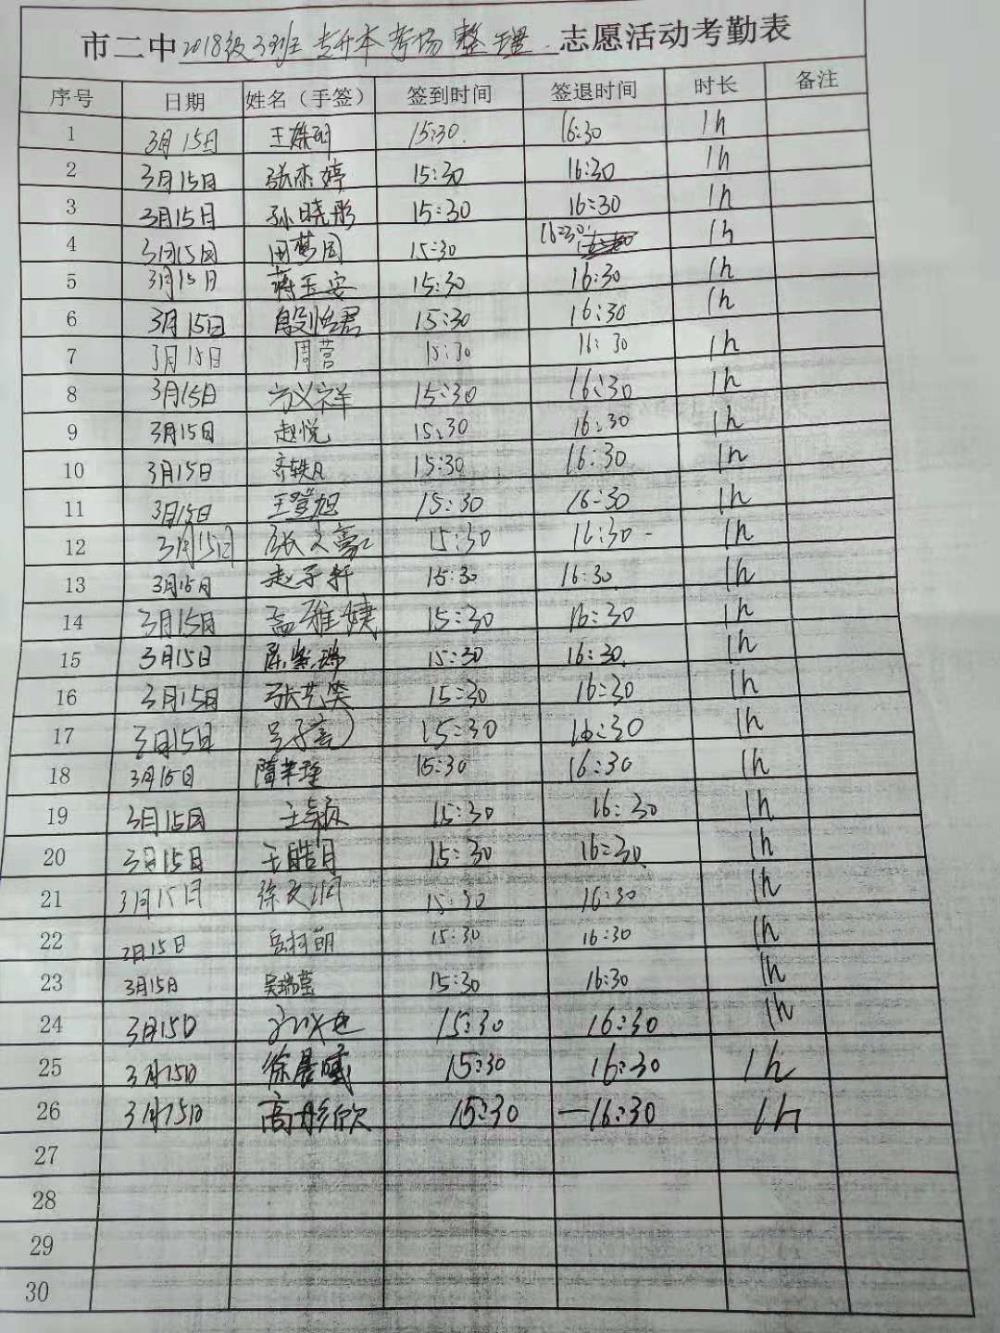 市二中2018级3班专升本考场整理志愿活动考勤表
序号 日期 姓名（手签） 签到时间 签退时间 时长 备注
1 3月15日 15:30. 16:30 1h
2 3月15日 张杰婷 15:30 16:30 1h
3 3月15日 孙晓彤 15:30 16:30 1h
4 3月15日 田梦园 15:30 16:30 1h
5 3月15日 蒋玉安 15:30 16:30 1h
6 3月15日 殷怡君 15:30 16:30 1h
7 3月15日 周营 15:30 16:30 1h
8 3月15日 方义祥 15:30 16:30 1h
9 3月15日 赵悦 15:30 16:30 1h
10 3月15日 齐轶凡 15:30 16:30 1h
11 3月15日 王登旭 15:30 16:30 1h
12 3月15日 张文豪 15:30 16:30 1h
13 3月15日 赵子轩 15:30 16:30 1h
14 3月15日 孟雅婕 15:30 16:30 1h
15 3月15日 陈紫瑞 15:30 16:30 1h
16 3月15日 张艺笑 15:30 16:30 1h
17 3月15日 15:30 16:30 1h
18 3月15日 15:30 16:30 1h
19 3月15日 王颖 15:30 16:30 1h
20 3月15日 王皓月 15:30 16:30 1h
21 3月15日 徐文润 15:30 16:30 1h
22 3月15日 岳柯萌 15:30 16:30 1h
23 3月15日 吴瑞莹 15:30 16:30 1h
24 3月15日 15:30 16:30 1h
25 3月15日 徐晨曦 15:30 16:30 1h
26 3月15日 高彤欣 15:30 —16:30 1h
27
28
29
30